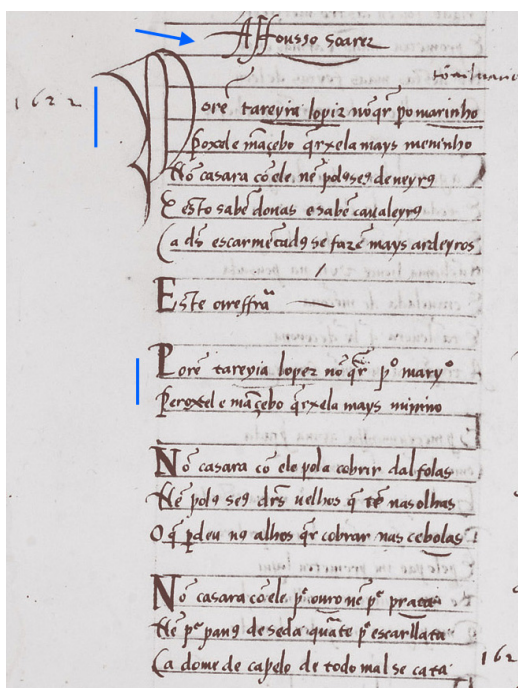 Affonsso Soarez
tornel
1622
Porē tareyia lopiz nō qr̄ po marinho
Poxel e māçebo qr̄xela mays meninho
Nō casara cō ele nē pol9 se9 deneyr9
E esto sabē donas e sabē caualeyr9
Ca ds̄ escarmētad9 se fazē mays ardeyros
Este o rreffrā
Porē tareyia lopez nō qr̄ po maryo
Peroxel e māçebo qr̄xela mays minino
Nō casara cō ele pola cobrir dalfolas
Nē pol9 se9 drs̄ uelhos q̄ tē nas olhas
O q̄ pdeu n9 alhos qr̄ cobrar nas cebolas
Nō casara cō ele pr ouro nē pr prata
Nē pr pan9 de seda quāte pr escarllata
Ca dome de capelo de todo mal se cata
162